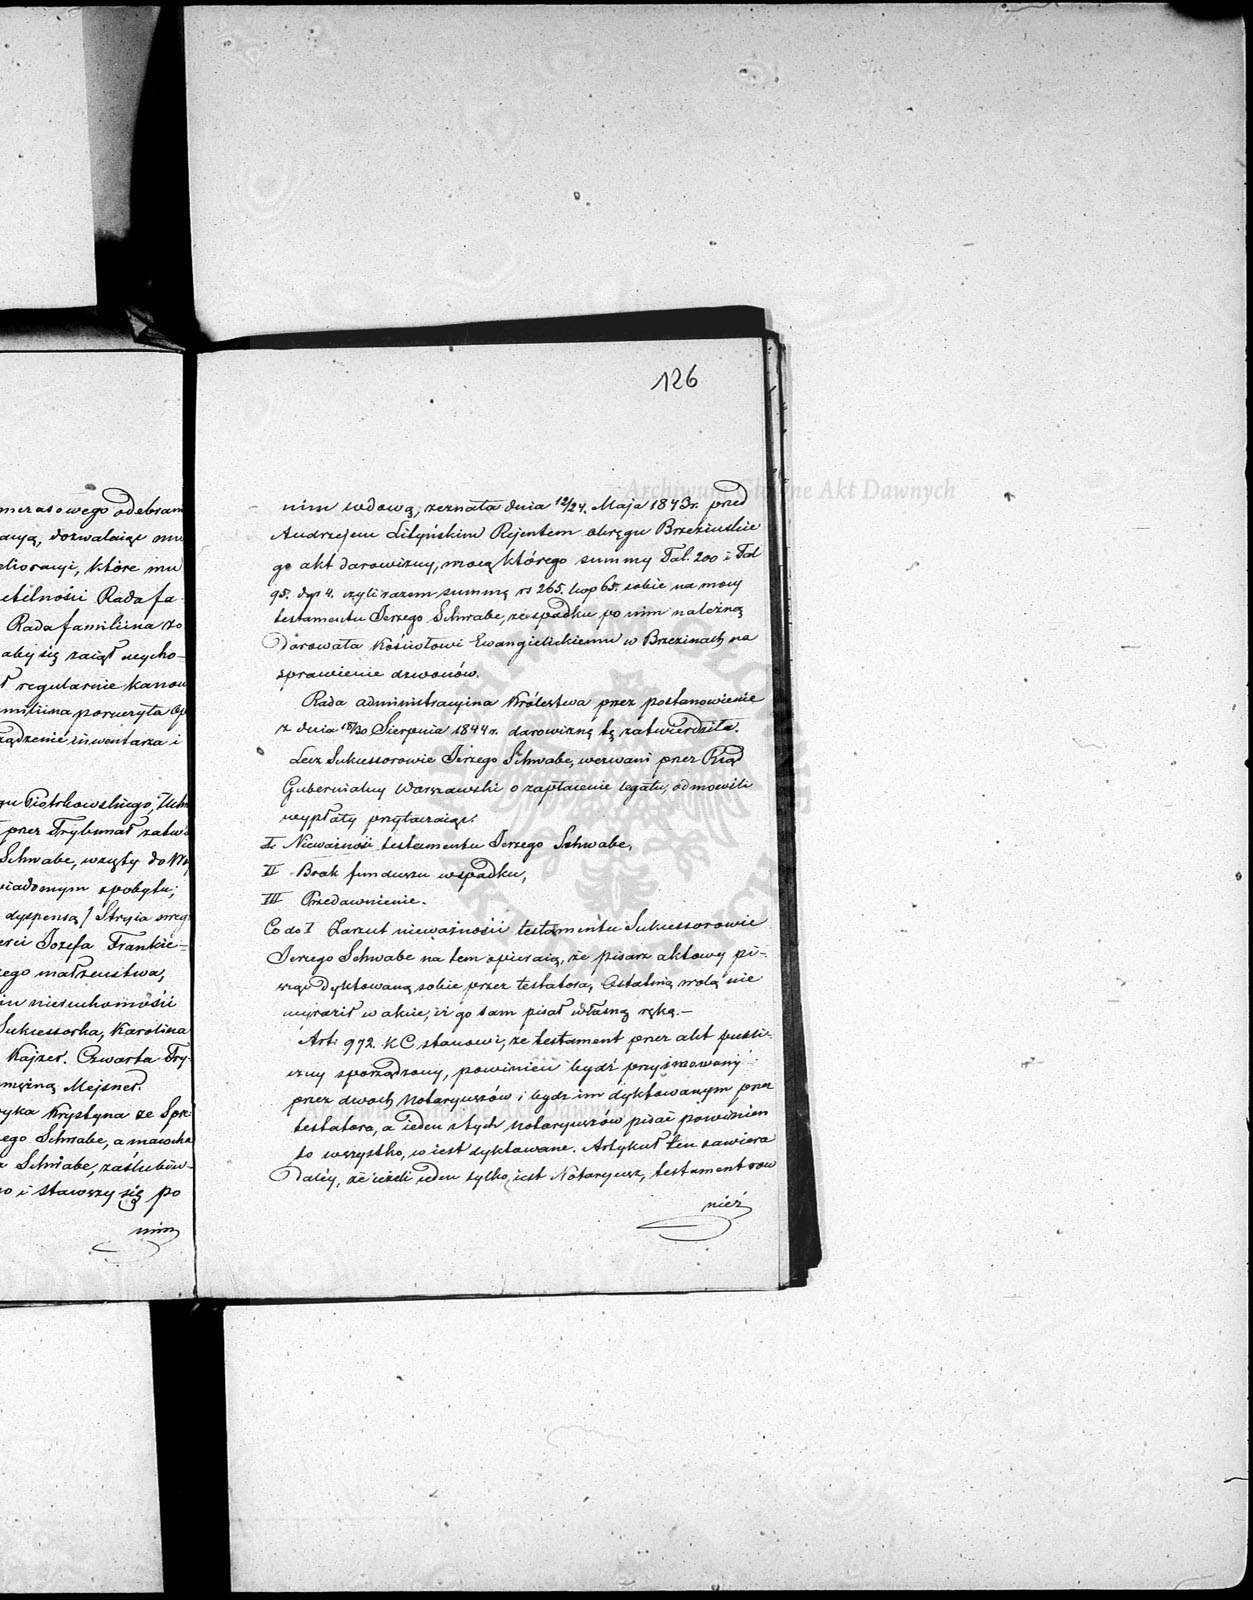 merasowego odebrani
dozwalaiąc mu
które mu
Rada fa-
Rada familiina zo
aby się zaiął wycho-
regularnie kanon
miliina poruczyła
rządzenie inwentarza i
Piotrkowskiego,
przez Trybunał
Schwabe, wzięty do
wiadomym pobytu;
dyspensą / Stryia
Jozefa Frankie=
iego małżeństwa,
nieruchomości
Sukcessorka, Karolina
Kajzer. Czwarta
mężną Mejsner.
Krystyna ze
Schwabe, a
Schwabe, zaślubiw-
i stawszy się po
nim
126
nim wdową, zeznała dnia 12/24. Maja 1843r. przed
Andrzejem Lityńskim Rejentem okręgu Brzezińskie
go akt darowizny, mocą którego summy Tal. 200 i Tal
95. dgr 4. czyli razem summę rs 265. kop 65. sobie na mocy
testamentu Jerzego Schwabe, ze spadku po nim należną
Darowała Kościołowi Ewangielickiemu w Brzezinach na
sprawienie dzwonów.
Rada administracyina Królestwa przez postanowienie
z dnia 18/30 Sierpnia 1844r. darowiznę tę zatwierdziła.
Lecz Sukcessorowie Jerzego Schwabe, wezwani przez Rząd
Gubernialny Warszawski o zapłacenie legatu, odmowili
wypłaty przytaczaiąc:
I. Nieważność testamentu Jerzego Schwabe,
II Brak funduszu w spadku,
III Przedawnienie.
Co do I Zarzut nieważności testamentu Sukcessorowie
Jerzego Schwabe na tem opieraią, że pisarz aktowy pi-
sząc dyktowaną sobie przez testatora, Ostatnią wolą nie
wyraził w akcie, iż go sam pisał własną ręką.-
Art. 972. KC stanowi, że testament przez akt publi-
czny sporządzony, powinien bydź przyimowany
przez dwoch Notaryuszów i bydź im dyktowanym przez
testatora, a ieden z tych Notaryuszów pisać powinien
to wszystko, co iest dyktowane. Artykuł ten zawiera
Daléy, że ieżeli ieden tylko iest Notaryusz, testament row
nież
Archiwum Główne Akt Dawnych
Archiwum Główne Akt Dawnych